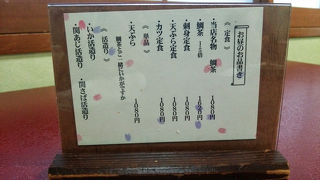 お昼のお品書き
《定食》
・当店名物 鯛茶 1080円
・鯛茶 1080円
・刺身定食 1080円
・天ぷら定食 1080円
・カツ定食 1080円
《単品》
鯛茶とご一緒にいかがですか
・天ぷら 1080円
《活造り》
・いか活造り
・関あじ活造り ・関さば活造り